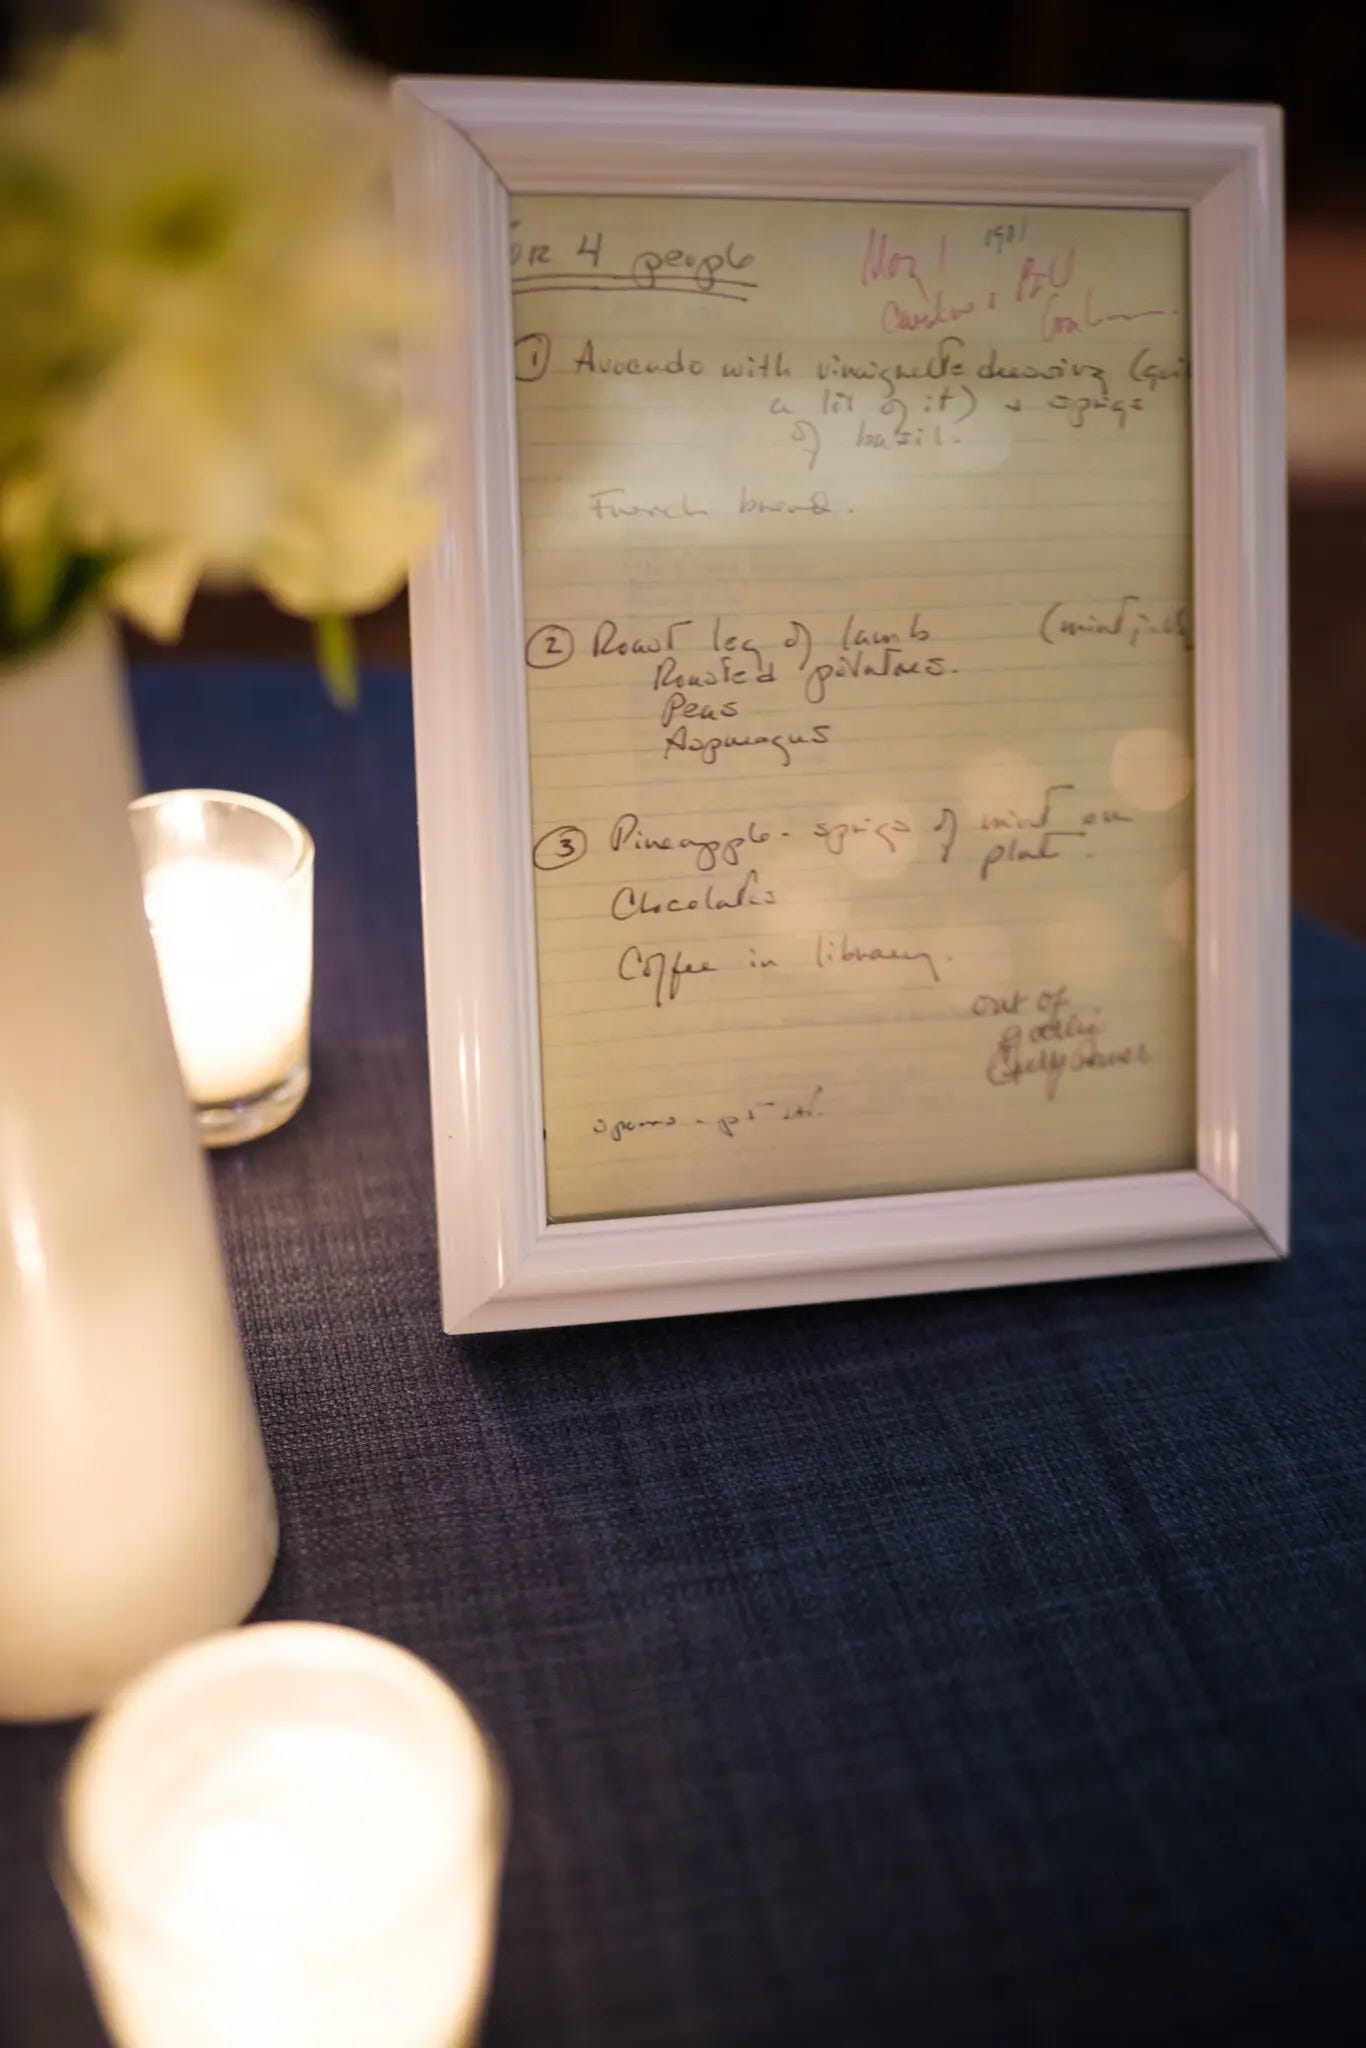 for 4 people
May 1 1981
①  Avocado with vinaigrette dressing
a lot of it) + sprigs
of basil.
French bread.
② Roast leg of lamb (mint
Roasted potatoes.
Peas
Asparagus
③ Pineapple - sprigs of mint on
plate.
Chocolates
Coffee in library.
out of